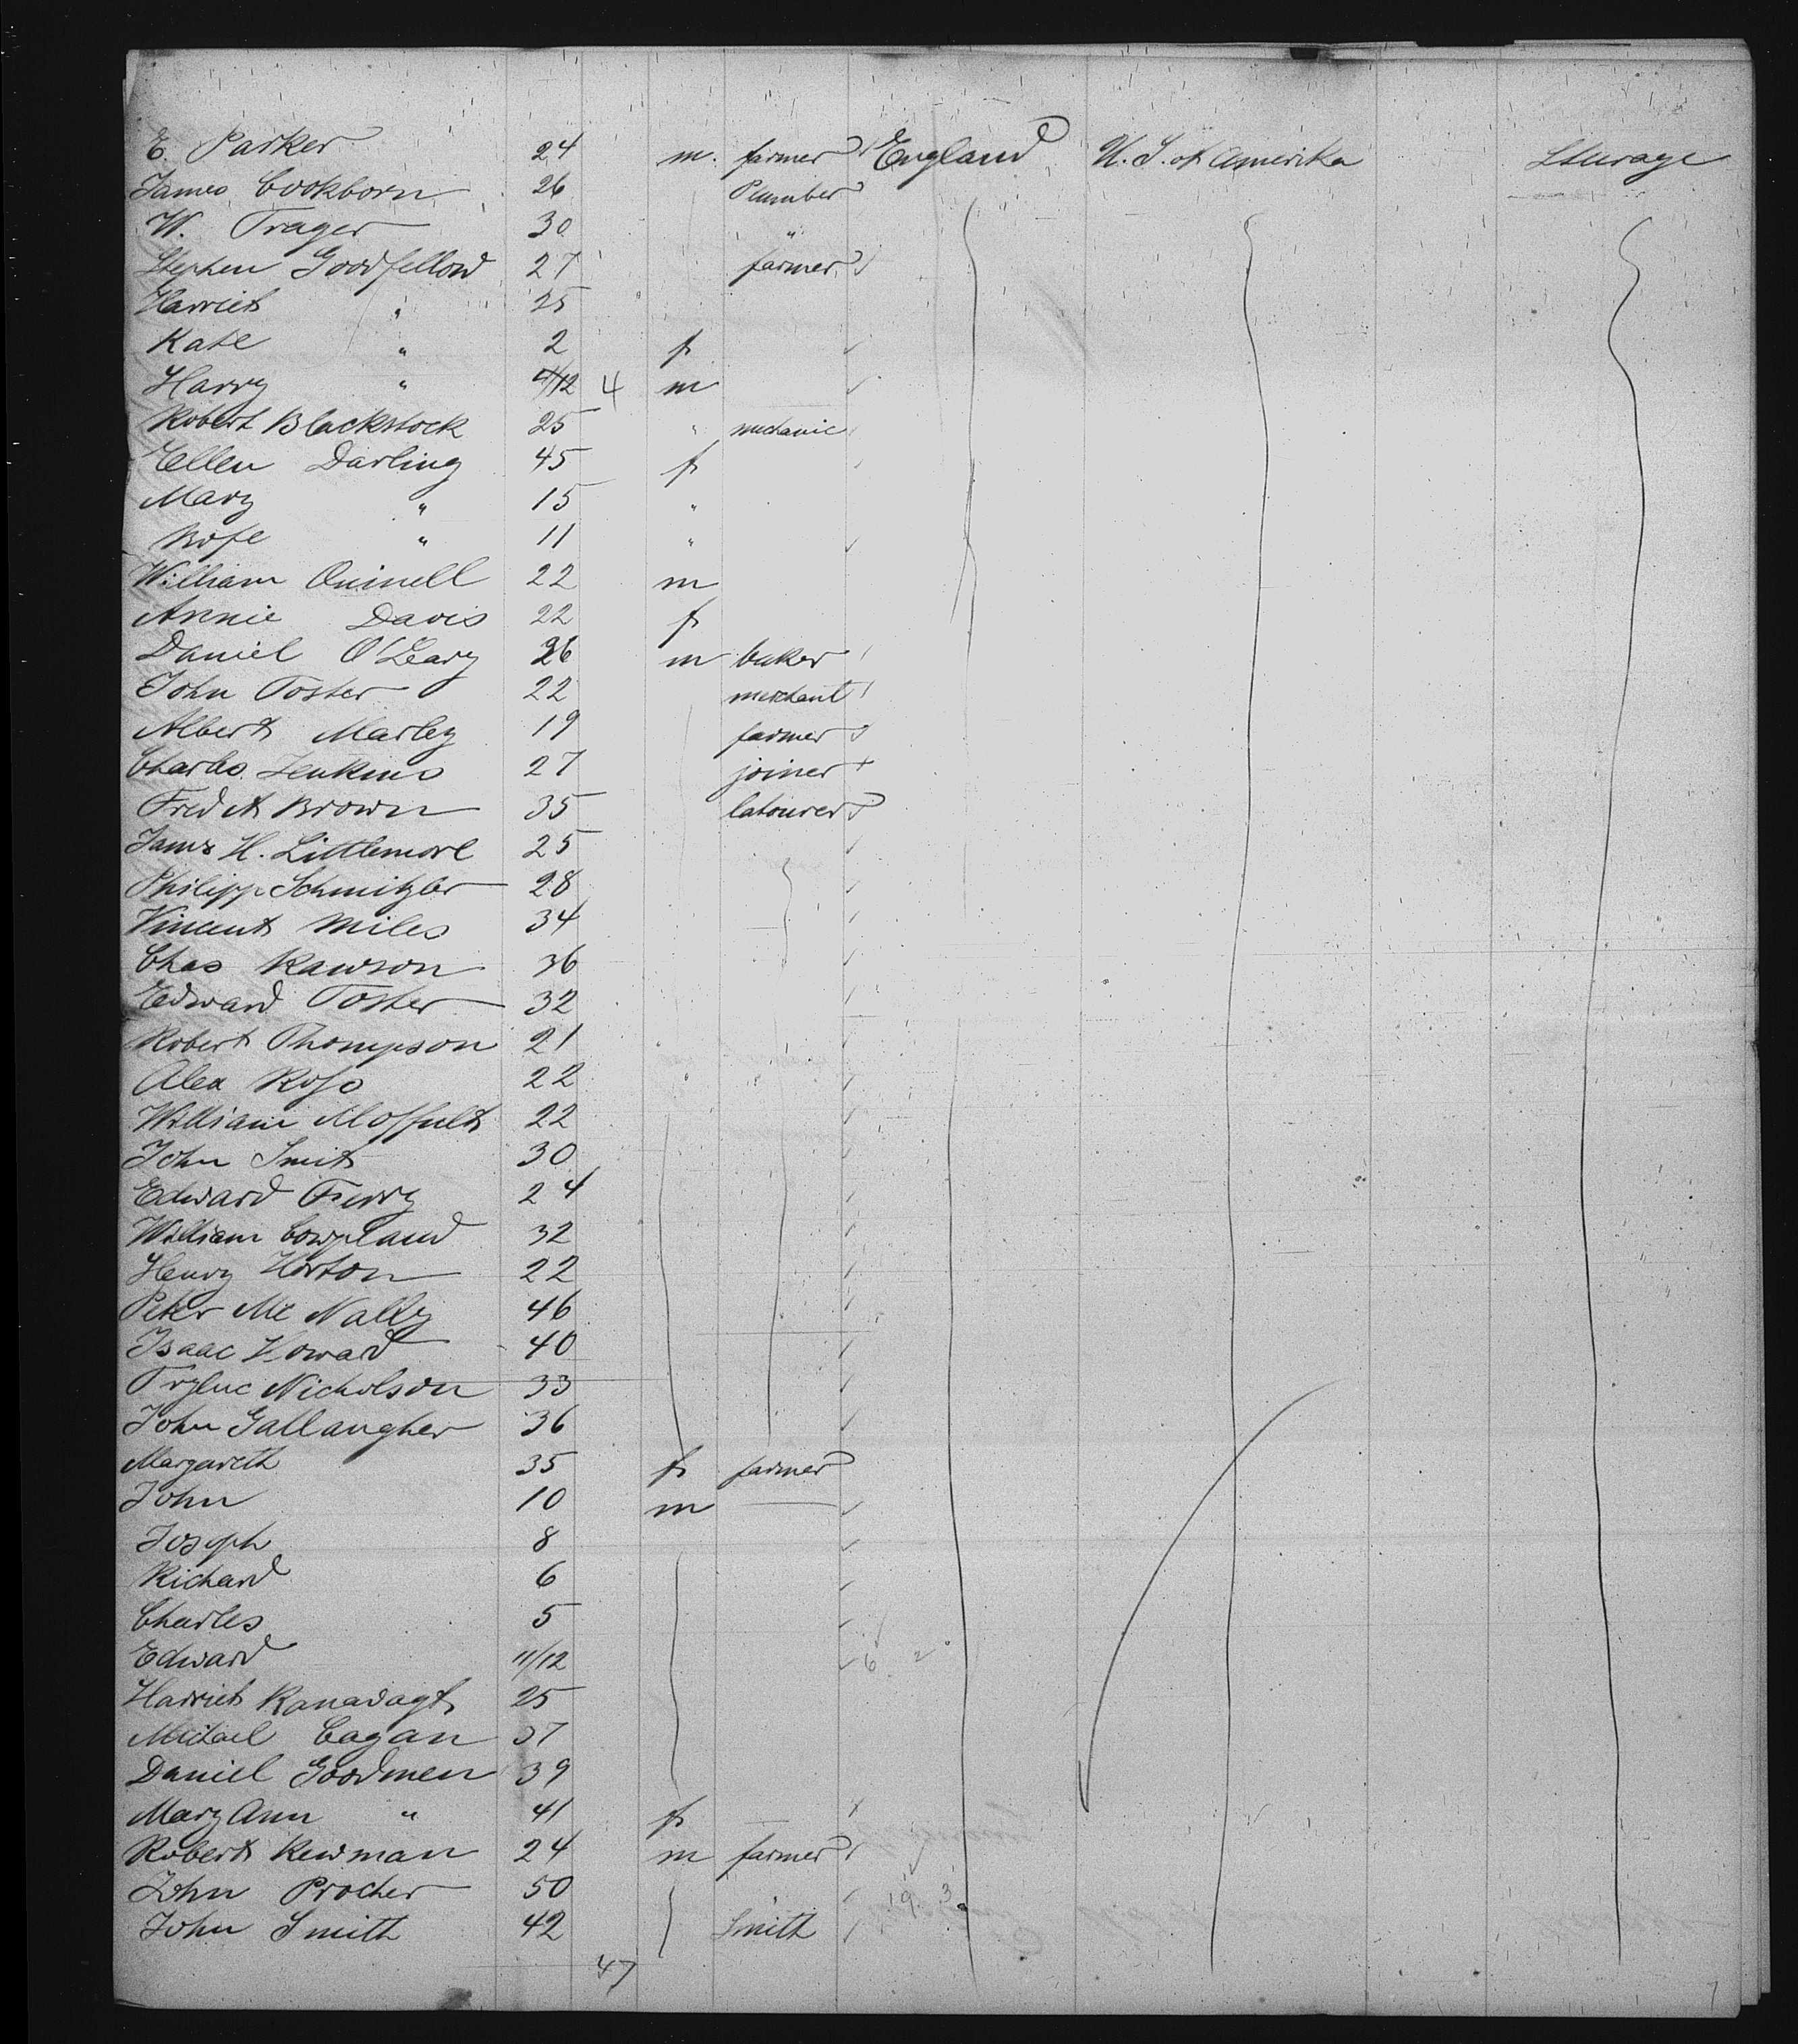 E. Parker 24 m. farmer England U. S. of Amerika Steerage
James Cookborn 26 Plumber
W. Trager 30 "
Stephen Goodfellow 27 farmer
Harriet " 25
Kate " 2 f
Harry " 4/12 4 m
Robert Blackstock 25 " mechanic
Ellen Darling 45 f
Mary " 15 "
Rose " 11 "
William Quinell 22 m
Annie Davis 22 f
Daniel O'Leary 26 m baker
John Foster 22 merchant
Albert Marley 19 farmer
Charles Jenkins 27 joiner
Fred A Brown 35 labourer
James H. Littlemore 25
Philipp Schmitzler 28
Vincent Miles 34
Chas Rawson 36
Edward Foster 32
Robert Thompson 21
Alex 22
William 22
John Smit 30
Edward 24
William Cowpland 32
Henry Horton 22
Peter Mc Nally 46
Isaac Howard 40
Nicholson 33
John Gallaugher 36
Margareth 35 f farmer
John 10 m
Joseph 8
Richard 6
Charles 5
Edward 11/12 6 2
Harriet 25
Michael Cagan 37
Daniel Goodmen 39
Mary Ann " 41 f
Robert Rewman 24 m farmer
John Procher 50 19 3
John Smith 42 Smith
47